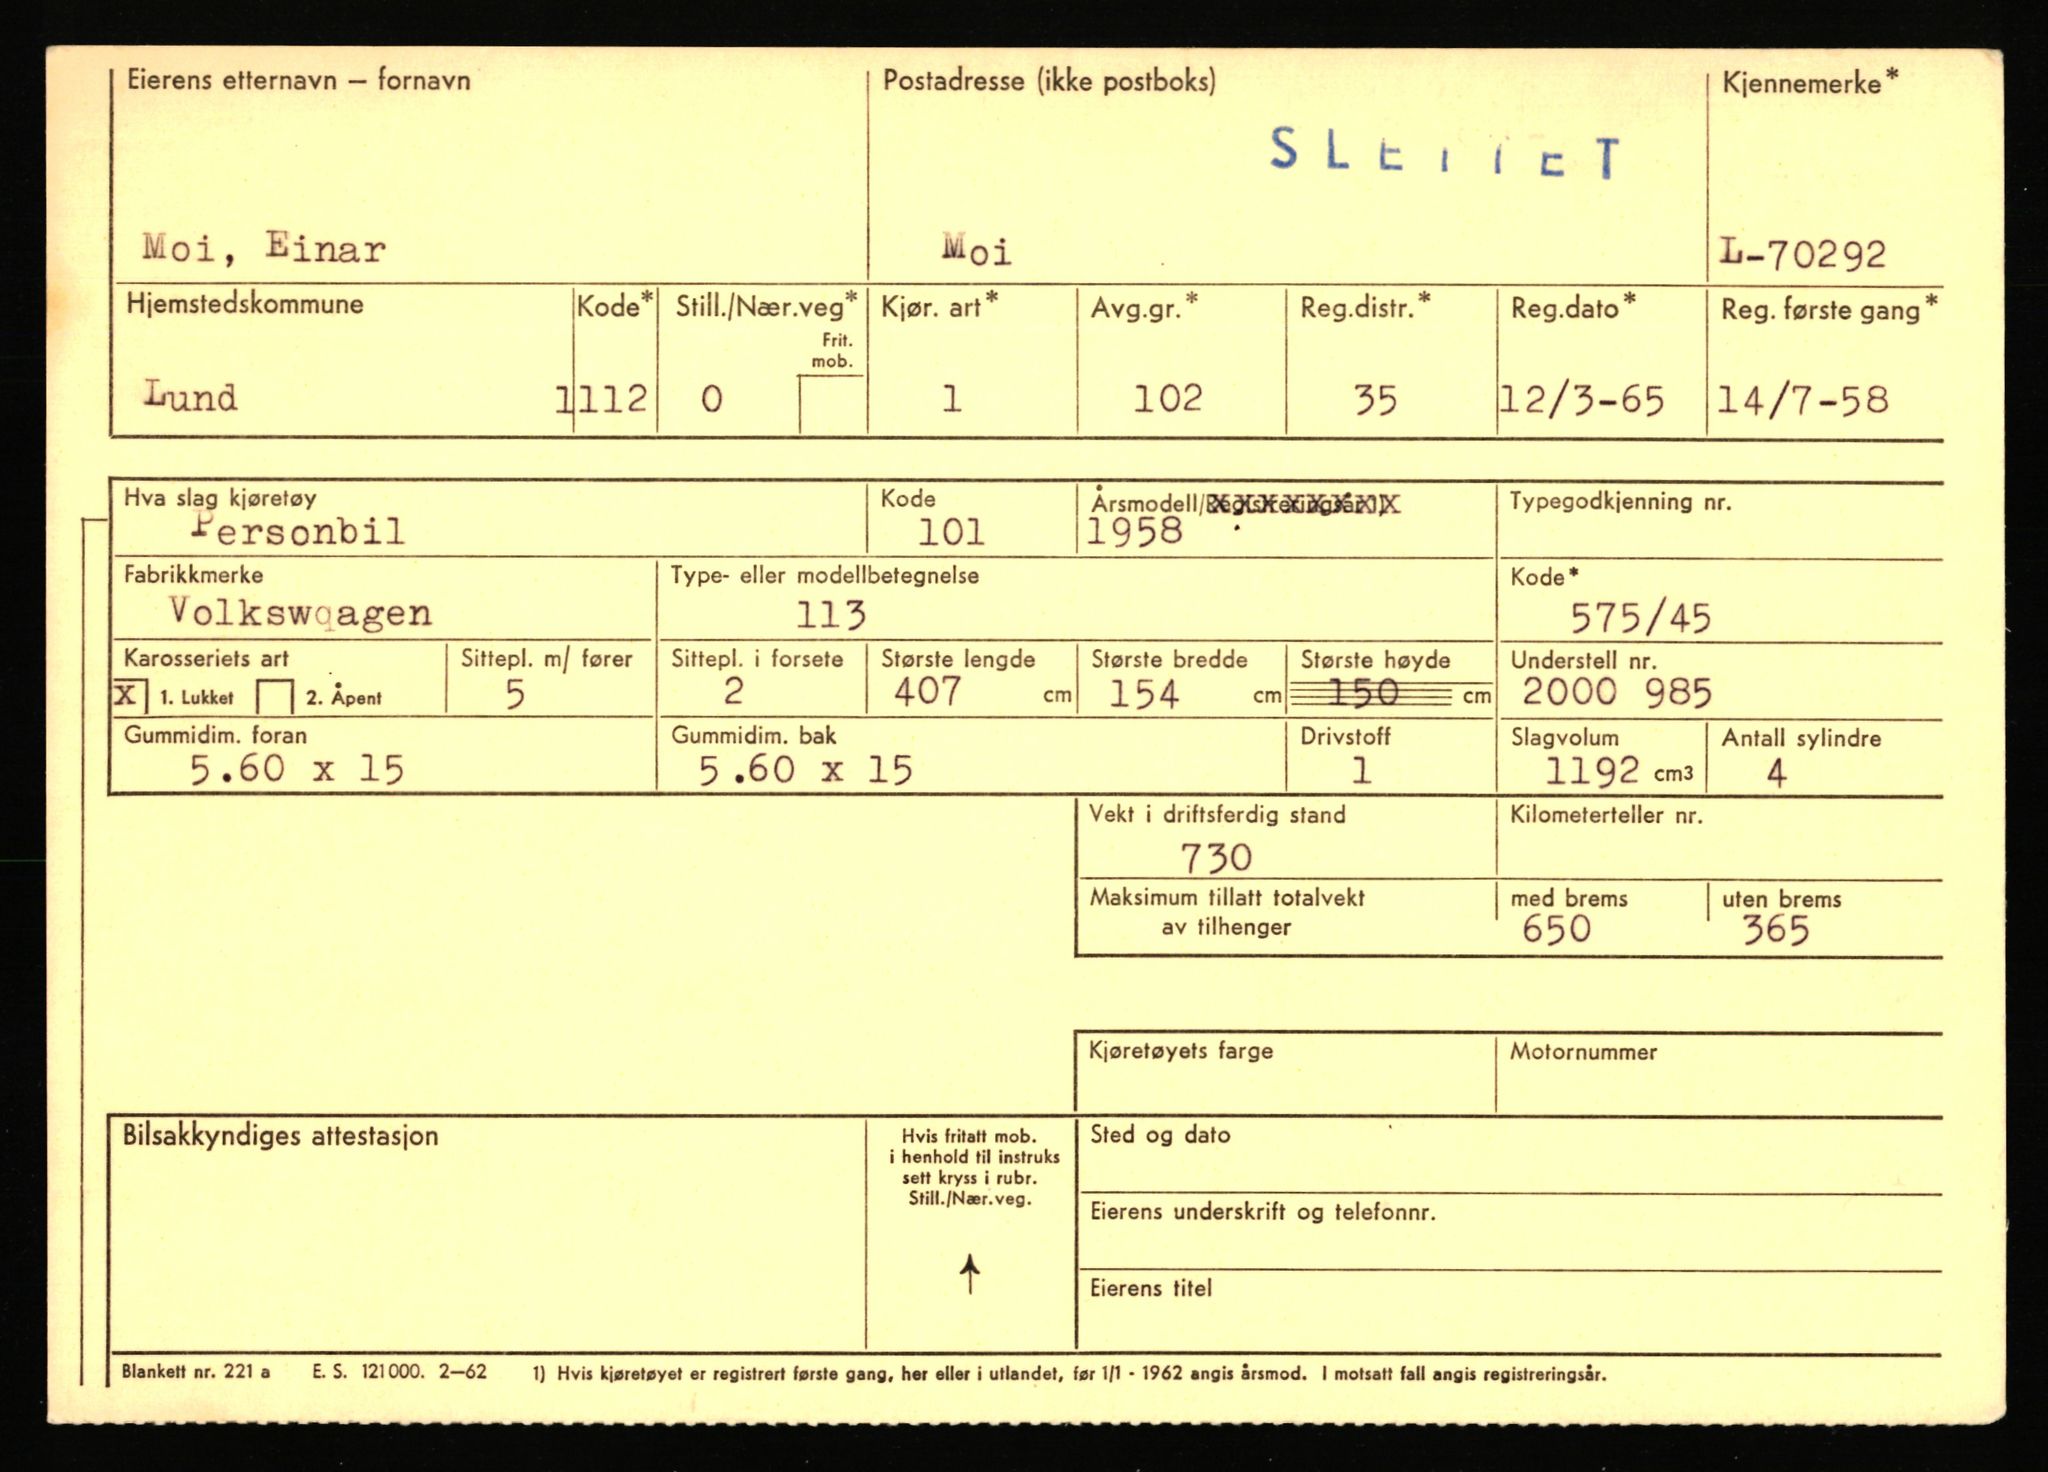 Eierens etternavn — fornavn
Postadresse (ikke postboks)
Kjennemerke*
SLETTET
Moi, Einar
Moi
L-70292
Hjemstedskommune
Kode*
Still./Nær.veg*
Frit.
mob.
Kjør. art*
Avg.gr.*
Reg.distr.*
Reg.dato*
Reg. første gang*
Lund
1112
0
1
102
35
12/3-65
14/7-58
Hva slag kjøretøy
Kode
Årsmodell/Registreringsår 1)
Typegodkjenning nr.
Personbil
101
1958
Fabrikkmerke
Type- eller modellbetegnelse
Kode*
Volkswqagen
113
575/45
Karosseriets art
Sittepl. m/ fører
Sittepl. i forsete
Største lengde
Største bredde
Største høyde
Understell nr.
X 1. Lukket 2. Åpent
5
2
407 cm
154 cm
150 cm
2000 985
Gummidim. foran
Gummidim. bak
Drivstoff
Slagvolum
Antall sylindre
5.60 x 15
5.60 x 15
1
1192 cm3
4
Vekt i driftsferdig stand
Kilometerteller nr.
730
Maksimum tillatt totalvekt
av tilhenger
med brems
uten brems
650
365
Kjøretøyets farge
Motornummer
Bilsakkyndiges attestasjon
Hvis fritatt mob.
i henhold til instruks
sett kryss i rubr.
Still./Nær.veg.
Sted og dato
Eierens underskrift og telefonnr.
Eierens titel
Blankett nr. 221 a E. S. 121000. 2—62 1) Hvis kjøretøyet er registrert første gang, her eller i utlandet, før 1/1 - 1962 angis årsmod. I motsatt fall angis registreringsår.